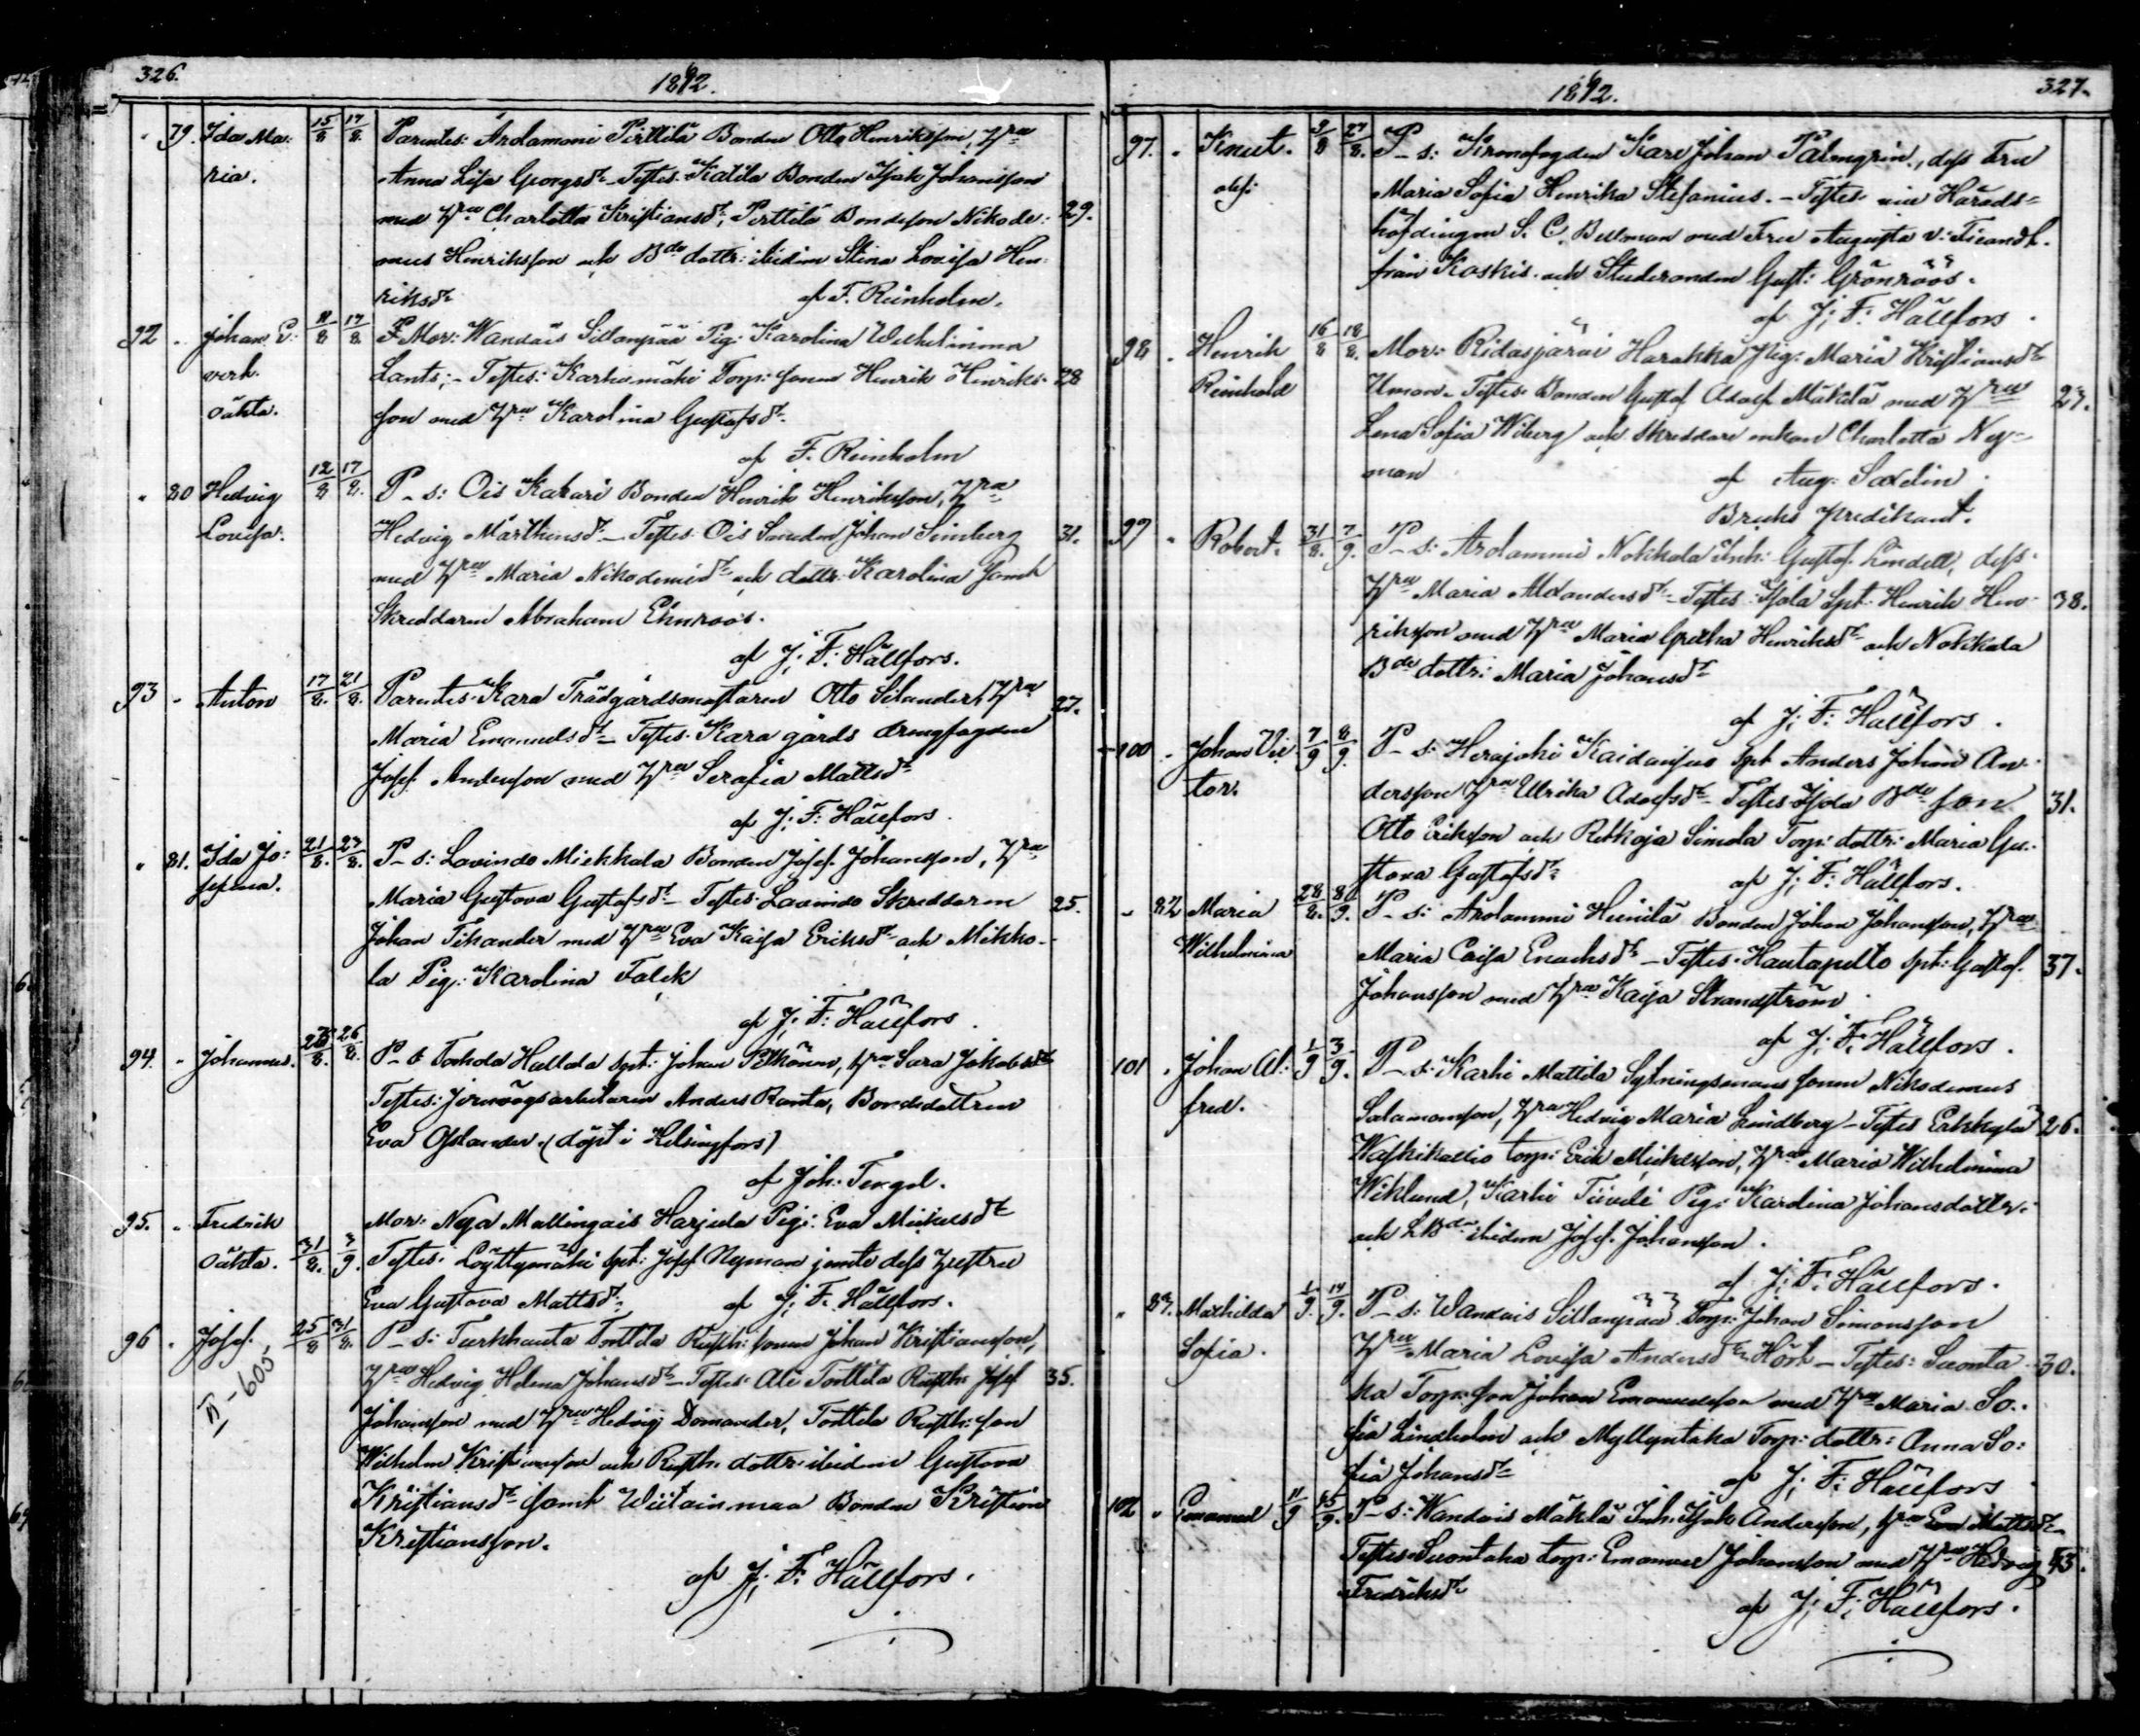 326.
1892.
79. Ida Ma: 15/8 17/8 Parentes: Arolammi Pirttilä Bonden Otto Henriksson, Hru
ria. Anna Lisa Georgsdr – Testes: Katila Bonden Isak Johansson
med Hru Charlotta Kristiansdr, Perttilä Bondeson Nikode: 29.
mus Henriksson och Bde dottr: ibidem Stina Lovisa Hen:
riksdr af F. Reinholm.
92 Johan E: 11/8 17/8 Mor: Wandais Sillanpää Pig: Karolina Wilhelmina
verh. Lants; – Testes: Karhumäki Torp: sonen Henrik Henriks- 28
oäkta. son med Hru Karolina Gustafsdr
af F. Reinholm
80 Hedvig 12/8 17/8 P – s: Ois Kakari Bonden Henrik Henriksson, Hru
Lovisa. Hedvig Marthensdr – Testes: Ois Johan Simberg 31.
med Hru Maria Nikodemidr och dottr: Karolina samt
Skreddaren Abraham Ehnroos.
af J. F. Hällfors.
93 Anton 17/8 21/8 Parentes: Kara Trädgårdsmästaren Otto Silander, Hru 27.
Maria Emanuelsdr – Testes: Kara gårds drengfogden
Josef Andersson med Hru Serafia Mattsdr
af J. F. Hällfors
81. Ida Jo: 21/8 27/8 P – s: Lavindo Mickkala Bonden Josef Johansson, Hru
sefina. Maria Gustava Gustafsdr – Testes: Lavindo Skreddaren 25.
Johan Tikander med Hru Eva Kaisa Eriksdr och Mikko-
la Pig: Karolina Falck
af J. F. Hällfors
94. Johannes. 26/8 P – s: Hallala spt: Johan Pitkänen, Hru Sara Jakobsdr
Testes: Jernvägsarbetaren Anders Ranta, Bondedottren
Eva Oslander (döpt i Helsingfors)
af Joh. Tengel.
95. Fredrik Mor: Nya Mallingais Harjula Pig: Eva Mickelsdr
oäkta. 31/8 3/9 Testes: Löyttymäki spt: Josef Nyman jemte dess hustru
Eva Gustava Mattsdr af J. F. Hällfors.
96 Josef. 25/8 31/8 P – s: Turkhauta Tottila Rusth: sonen Johan Kristiansson,
II-605 Hru Hedvig Helena Johansdr – Testes: Ali Tottila Rusth: Josef 35.
Johansson med Hru Hedvig Domander, Tottila Rusth: son
Wilhelm Kristiansson och Rusth: dottr: ibidem Gustava
Kristiansdr samt Wiitainmaa Bonden Kristian
Kristiansson.
af J. F. Hällfors.
327.
1892.
97. Knut. 3/8 27/8 P – s: Kronofogden Karl Johan Palmgrén, dess Fru
Maria Sofia Henrika Stefanius. – Testes: vice Härads=
höfdingen S. C. Bellman med Fru Augusta v: Ticandt.
från Koskis. och Studeranden Gust: Grönroos.
af J. F. Hällfors.
98. Henrik 16/8 18/8 Mor: Ridasjärvi Harakka Pig: Maria Kristiansdr
Reinhold Uman. Testes: Bonden Gustaf Adolf Mäkilä med Hru 27.
Lena Sofia Wiberg och skreddare enkan Charlotta Ny-
man af Aug. Saxelin
Bruks predikant.
99 Robert. 31/8 7/9 P – s: Arolammi Nokkala Inh: Gustaf Lindell, dess
Hru Maria Alexandersdr – Testes: Isola Spt: Henrik Hen- 38.
riksson med Hru Maria Gretha Henriksdr och Nokkala
Bde dottr: Maria Johansdr
af J. F. Hällfors.
100 Johan Vic 7/9 8/9 P – s: Herajoki Spt: Anders Johan An-
tor. dersson Hru Ulrika Adolfsdr – Testes: Isola Bde son 31.
Otto Eriksson och Retkoja Simola Torp: dottr: Maria Gu-
stava Gustafsdr af J. F. Hällfors.
82 Maria 28/8 8/9 P – s: Arolammi Heinilä Bonden Johan Johansson, Hru
Wilhelmina Maria Caisa Enochsdr – Testes: Hautapelto Spt: Gustaf 37.
Johansson med Hru Kaisa Strandström
af J. F. Hällfors.
101 Johan Al: 1/9 3/9 P – s: Karhi Mattila Sytningsmans sonen Nikodemus
fred. Salamonsson, Hru Hedvig Maria Lindberg – Testes: Erkkylä 26.
Waskikallio torp: Erik Mickelsson, Hru Maria Wilhelmina
Wiklund, Karhi Pig: Karolina Johansdottr:
och ibidem Josef Johansson.
af J. F. Hällfors.
83. Mathilda 1/9 14/9 P – s: Wandais Sillanpää Torp: Johan Simonsson
Sofia. Hru Maria Lovisa Andersdr Hörk – Testes: Suonta- 30.
ka Torp: son Johan Emanuelsson med Hru Maria So-
fia Lindholm och Myllyntaka Torp: dottr: Anna So:
fia Johansdr af J. F. Hällfors
102 Emanuel 11/9 15/9 P – s: Wandais Mäkilä Inh: Isak Andersson, Hru Eva Mattsdr
Testes: Suontaka torp: Emanuel Johansson med Hru Hedvig 43.
Fredriksdr af J. F. Hällfors.